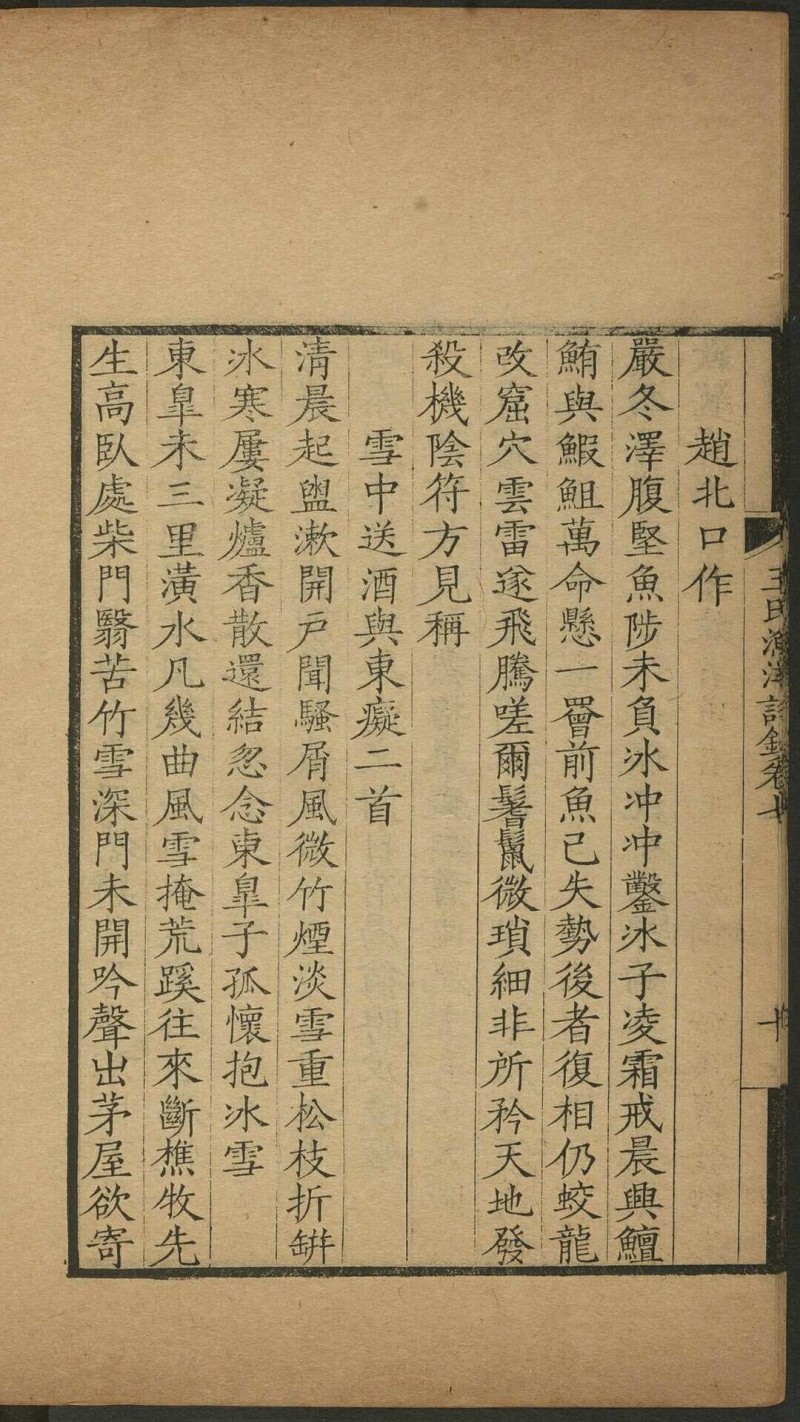 王氏漁洋詩鈔卷十
十
趙北口作
嚴冬澤腹堅魚陟未負冰冲冲鑿冰子凌霜戒晨興鱣
鮪與鰕鮏萬命懸一罾前魚已失勢後者復相仍蛟龍
改窟穴雲雷遂飛騰嗟爾鬐鬣微瑣細非所矜天地發
殺機陰符方見稱
雪中送酒與東癡二首
清晨起盥漱開戶聞騷屑風微竹煙淡雪重松枝折缾
冰寒屢凝爐香散還結忽念東臯子孤懷抱冰雪
東臯未三里潢水凡幾曲風雪掩荒蹊往來斷樵牧先
生高臥處柴門翳苦竹雪深門未開吟聲出茅屋欲寄